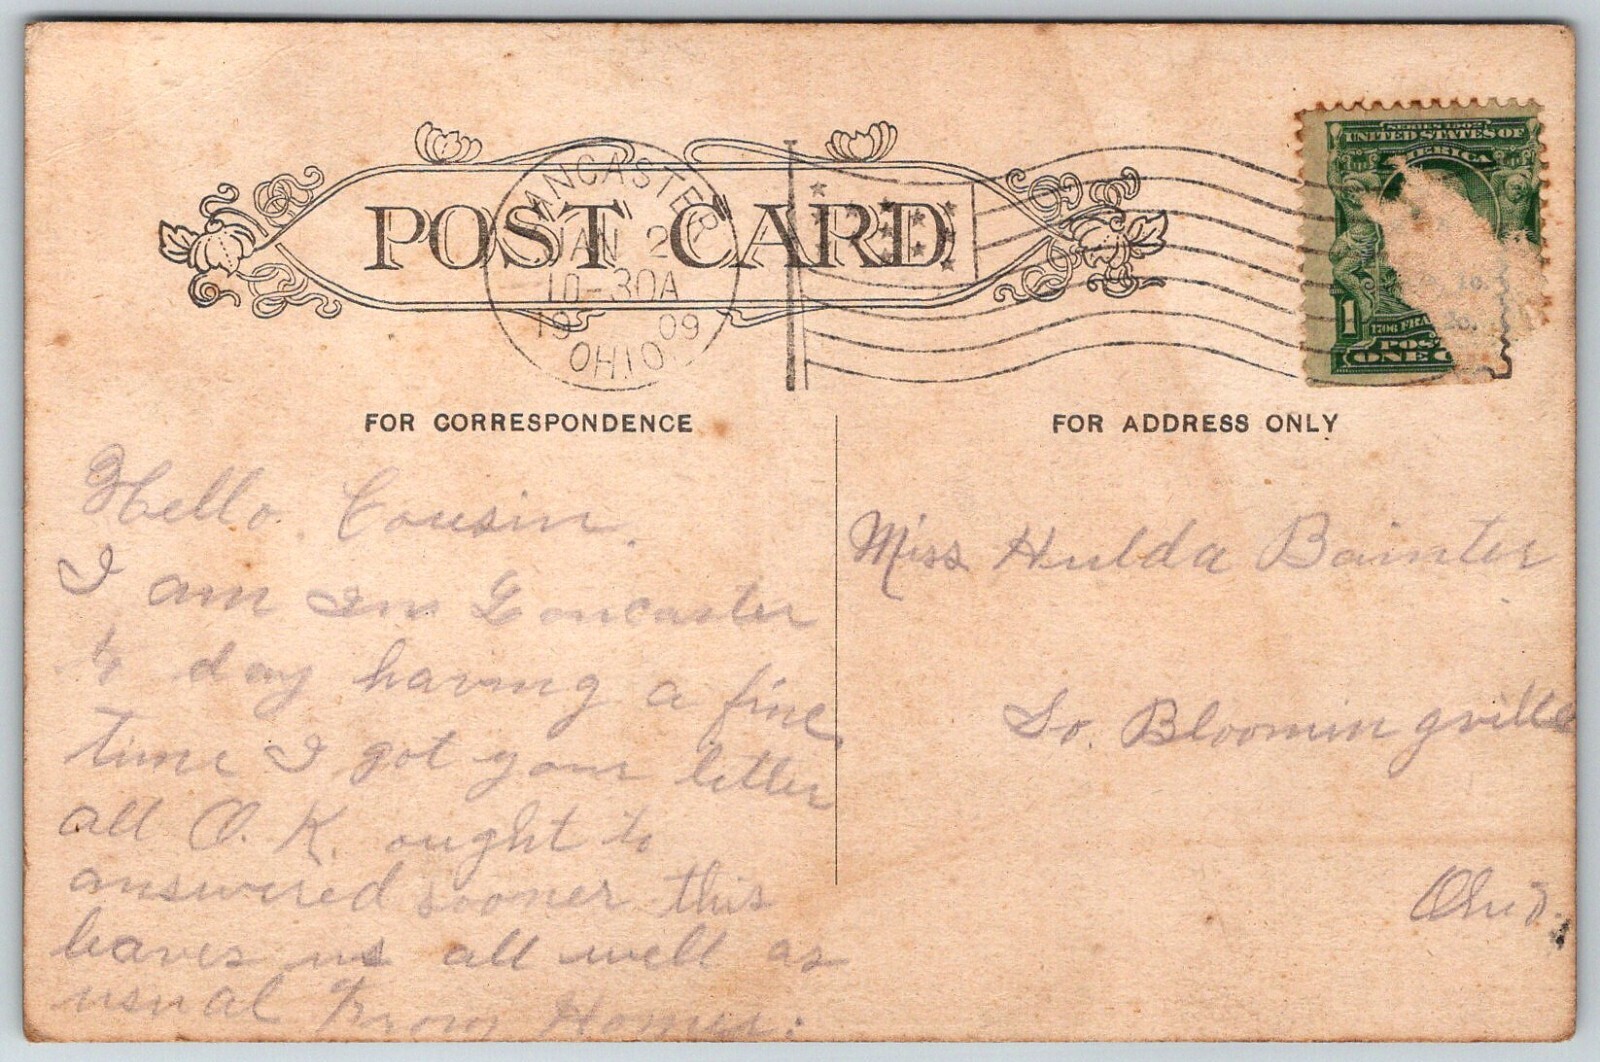 POST CARD
LANCASTER
JAN 2
10-30A
1909
OHIO
SERIES 1902
UNITED STATES OF
AMERICA
1
1706 FRA
POS
ONE C
FOR CORRESPONDENCE
FOR ADDRESS ONLY
Hello Cousin.
I am In Loncaster
to day having a fine
time I got your letter
all O.K. ought to
answered sooner this
leaves us all well as
usual
Miss Hulda Bainter
So. Bloomingville
Ohio.